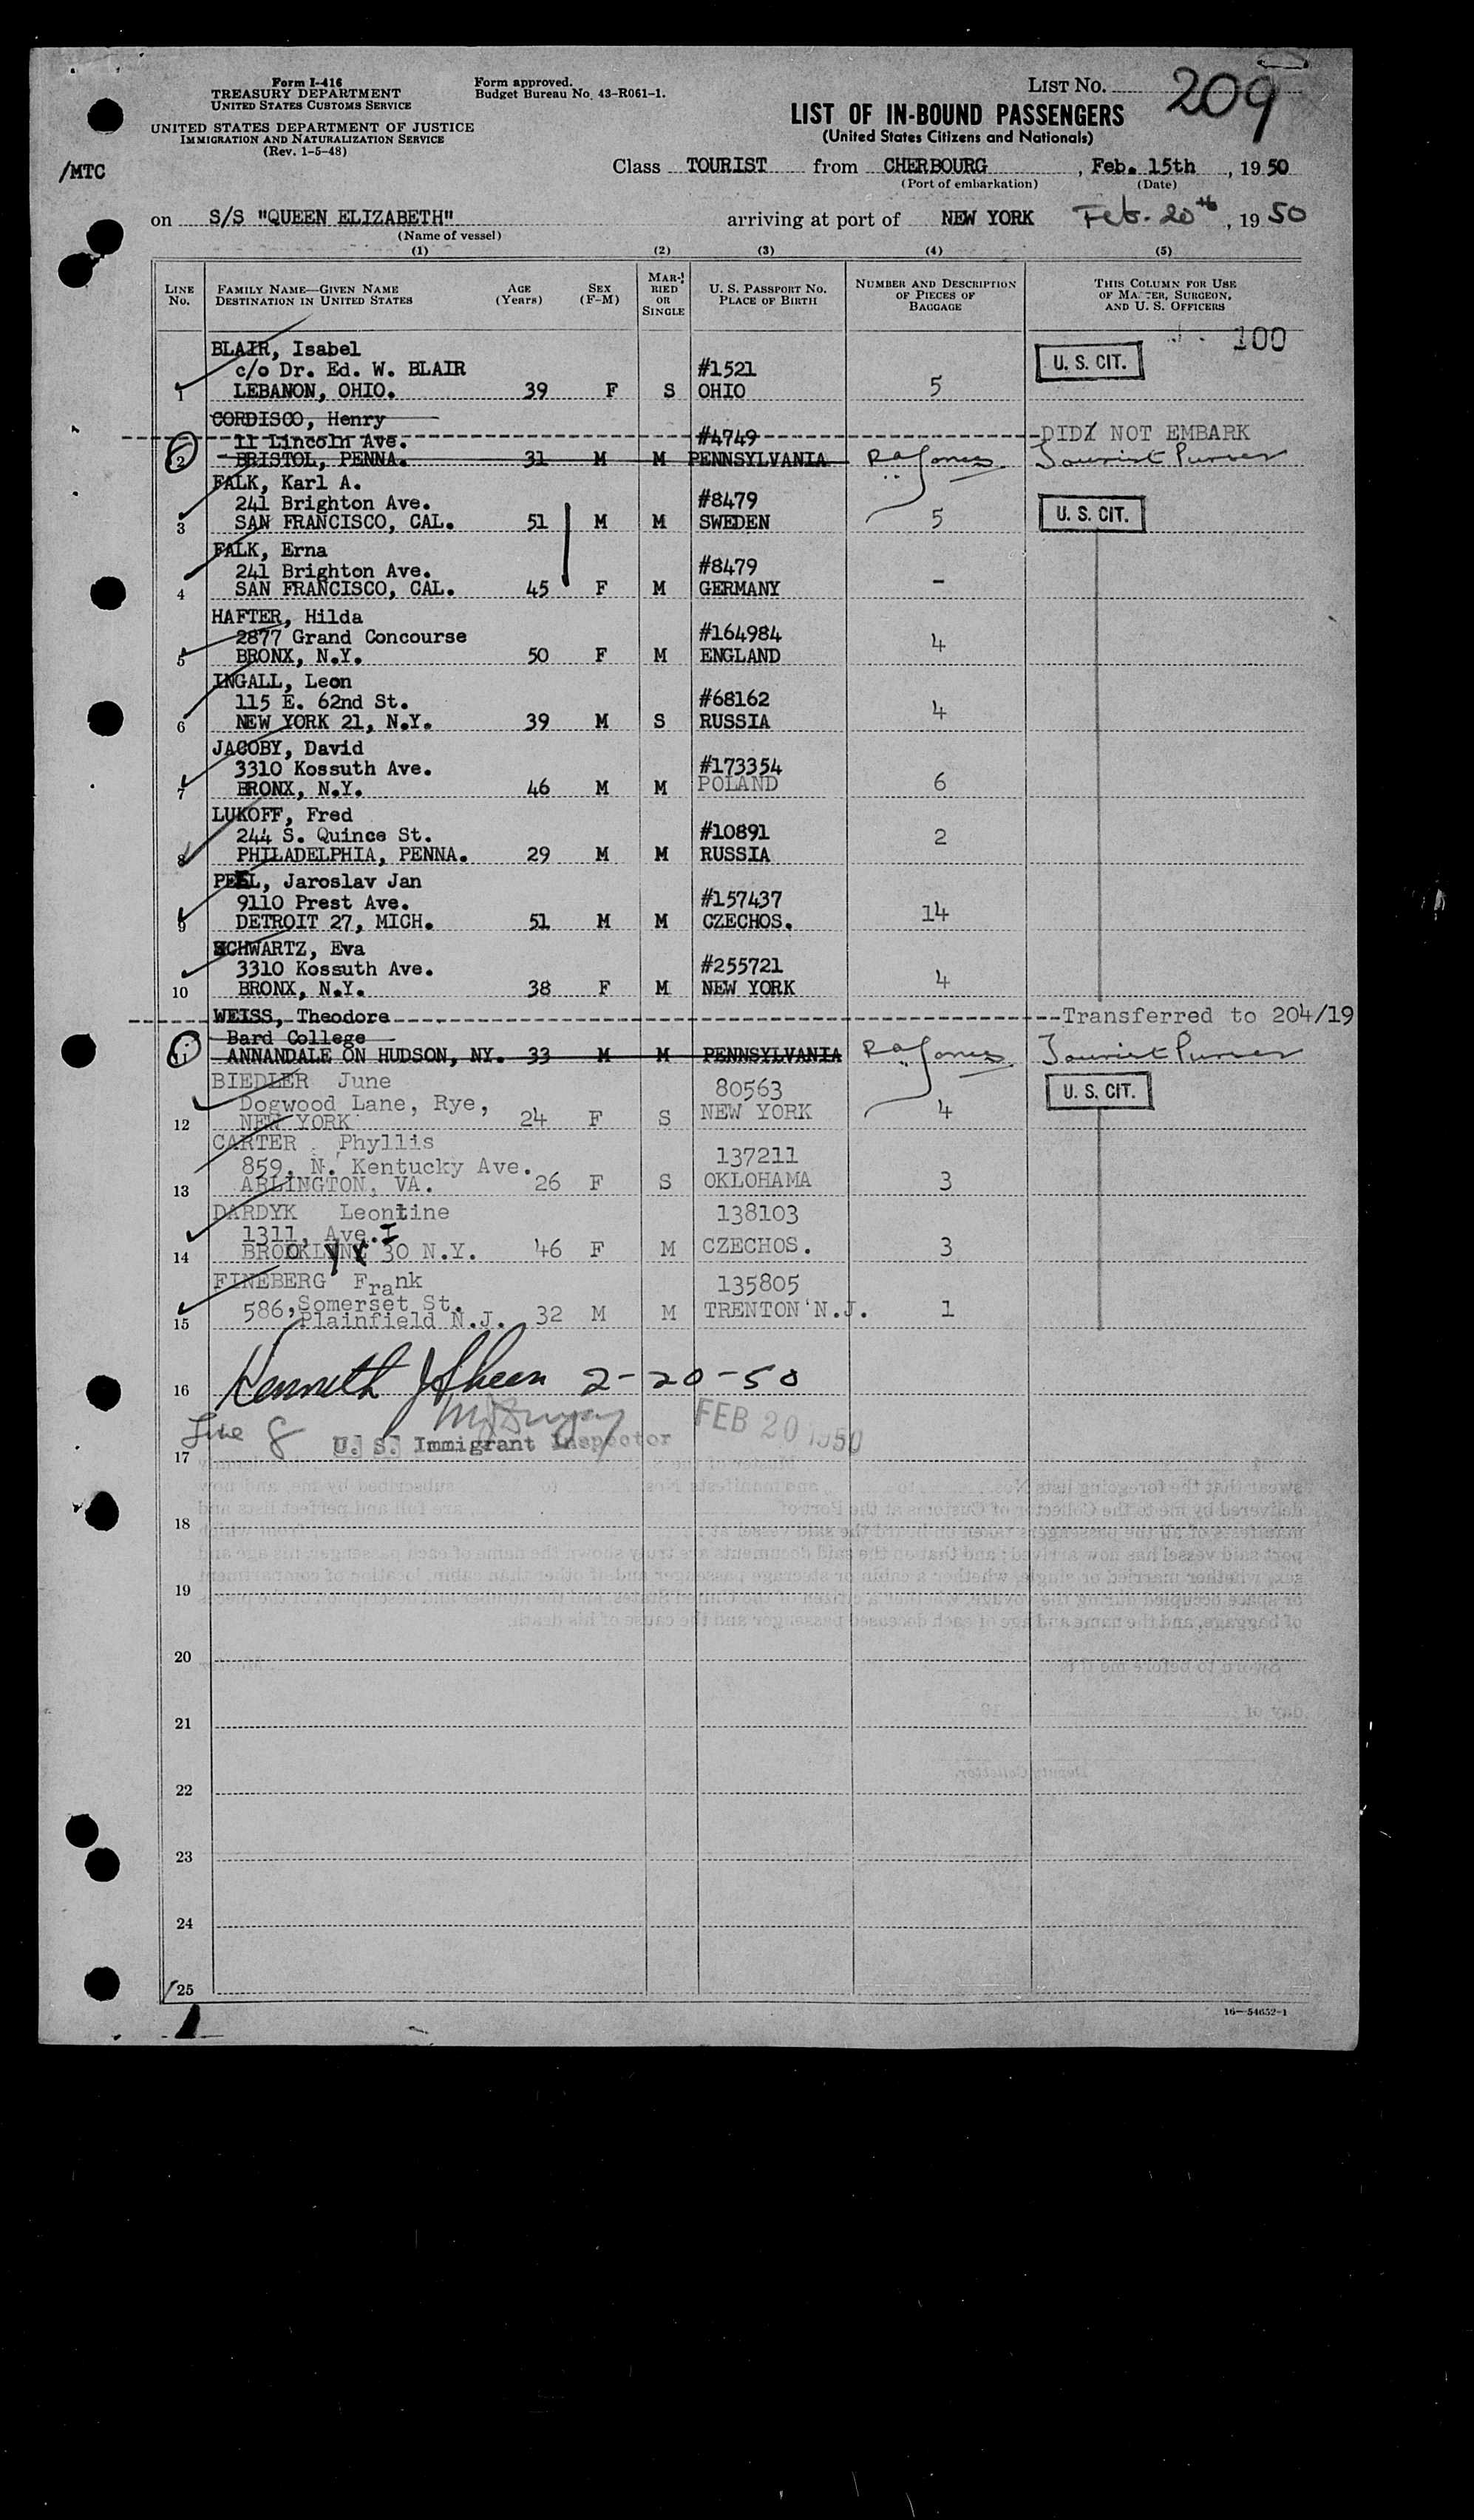 Form I-416
TREASURY DEPARTMENT
UNITED STATES CUSTOMS SERVICE
UNITED STATES DEPARTMENT OF JUSTICE
IMMIGRATION AND NATURALIZATION SERVICE
(Rev. 1-5-48)
Form approved.
Budget Bureau No. 43-R061-1.
LIST No. 209
LIST OF IN-BOUND PASSENGERS
(United States Citizens and Nationals)
/MTC
Class TOURIST from CHERBOURG, Feb. 15th, 1950
(Port of embarkation) (Date)
on S/S "QUEEN ELIZABETH" arriving at port of NEW YORK Feb. 20th, 1950
(Name of vessel)
(1) (2) (3) (4) (5)
LINE No. FAMILY NAME—GIVEN NAME DESTINATION IN UNITED STATES AGE (Years) SEX (F-M) MARRIED OR SINGLE U. S. PASSPORT No. PLACE OF BIRTH NUMBER AND DESCRIPTION OF PIECES OF BAGGAGE THIS COLUMN FOR USE OF MASTER, SURGEON, AND U. S. OFFICERS
100
BLAIR, Isabel
c/o Dr. Ed. W. BLAIR #1521 U. S. CIT.
1 LEBANON, OHIO. 39 F S OHIO 5
CORDISCO, Henry
11 Lincoln Ave. #4749 DID NOT EMBARK
2 BRISTOL, PENNA. 31 M M PENNSYLVANIA Tourist Purser
FALK, Karl A.
241 Brighton Ave. #8479 U. S. CIT.
3 SAN FRANCISCO, CAL. 51 M M SWEDEN 5
FALK, Erna
241 Brighton Ave. #8479
4 SAN FRANCISCO, CAL. 45 F M GERMANY -
HAFTER, Hilda
2877 Grand Concourse #164984
5 BRONX, N.Y. 50 F M ENGLAND 4
INGALL, Leon
115 E. 62nd St. #68162
6 NEW YORK 21, N.Y. 39 M S RUSSIA 4
JACOBY, David
3310 Kossuth Ave. #173354
7 BRONX, N.Y. 46 M M POLAND 6
LUKOFF, Fred
244 S. Quince St. #10891
8 PHILADELPHIA, PENNA. 29 M M RUSSIA 2
PEEL, Jaroslav Jan
9110 Prest Ave. #157437
9 DETROIT 27, MICH. 51 M M CZECHOS. 14
SCHWARTZ, Eva
3310 Kossuth Ave. #255721
10 BRONX, N.Y. 38 F M NEW YORK 4
WEISS, Theodore Transferred to 204/19
Bard College
11 ANNANDALE ON HUDSON, NY. 33 M M PENNSYLVANIA Tourist Purser
BIEDLER June 80563 U. S. CIT.
Dogwood Lane, Rye,
12 NEW YORK 24 F S NEW YORK 4
CARTER Phyllis 137211
859, N. Kentucky Ave.
13 ARLINGTON, VA. 26 F S OKLOHAMA 3
DARDYK Leontine 138103
1311, Ave. I
14 BROOKLYN 30 N.Y. 46 F M CZECHOS. 3
FINEBERG Frank 135805
586, Somerset St.
15 Plainfield N.J. 32 M M TRENTON N.J. 1
16 Kenneth 2-20-50
Line 8 FEB 20 1950
17 U. S. Immigrant Inspector
18
19
20
21
22
23
24
25
16—54652-1